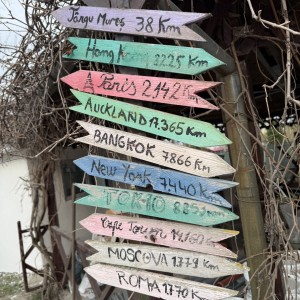 Târgu Mureș 38 Km
Hong Kong 8225 Km
Paris 2.142 Km
AUCKLAND 17.365 Km
BANGKOK 7.866 Km
New York 7.440 Km
TOKIO 8853 Km
Cape Town
MOSCOVA 1379 Km
ROMA 1770 Km